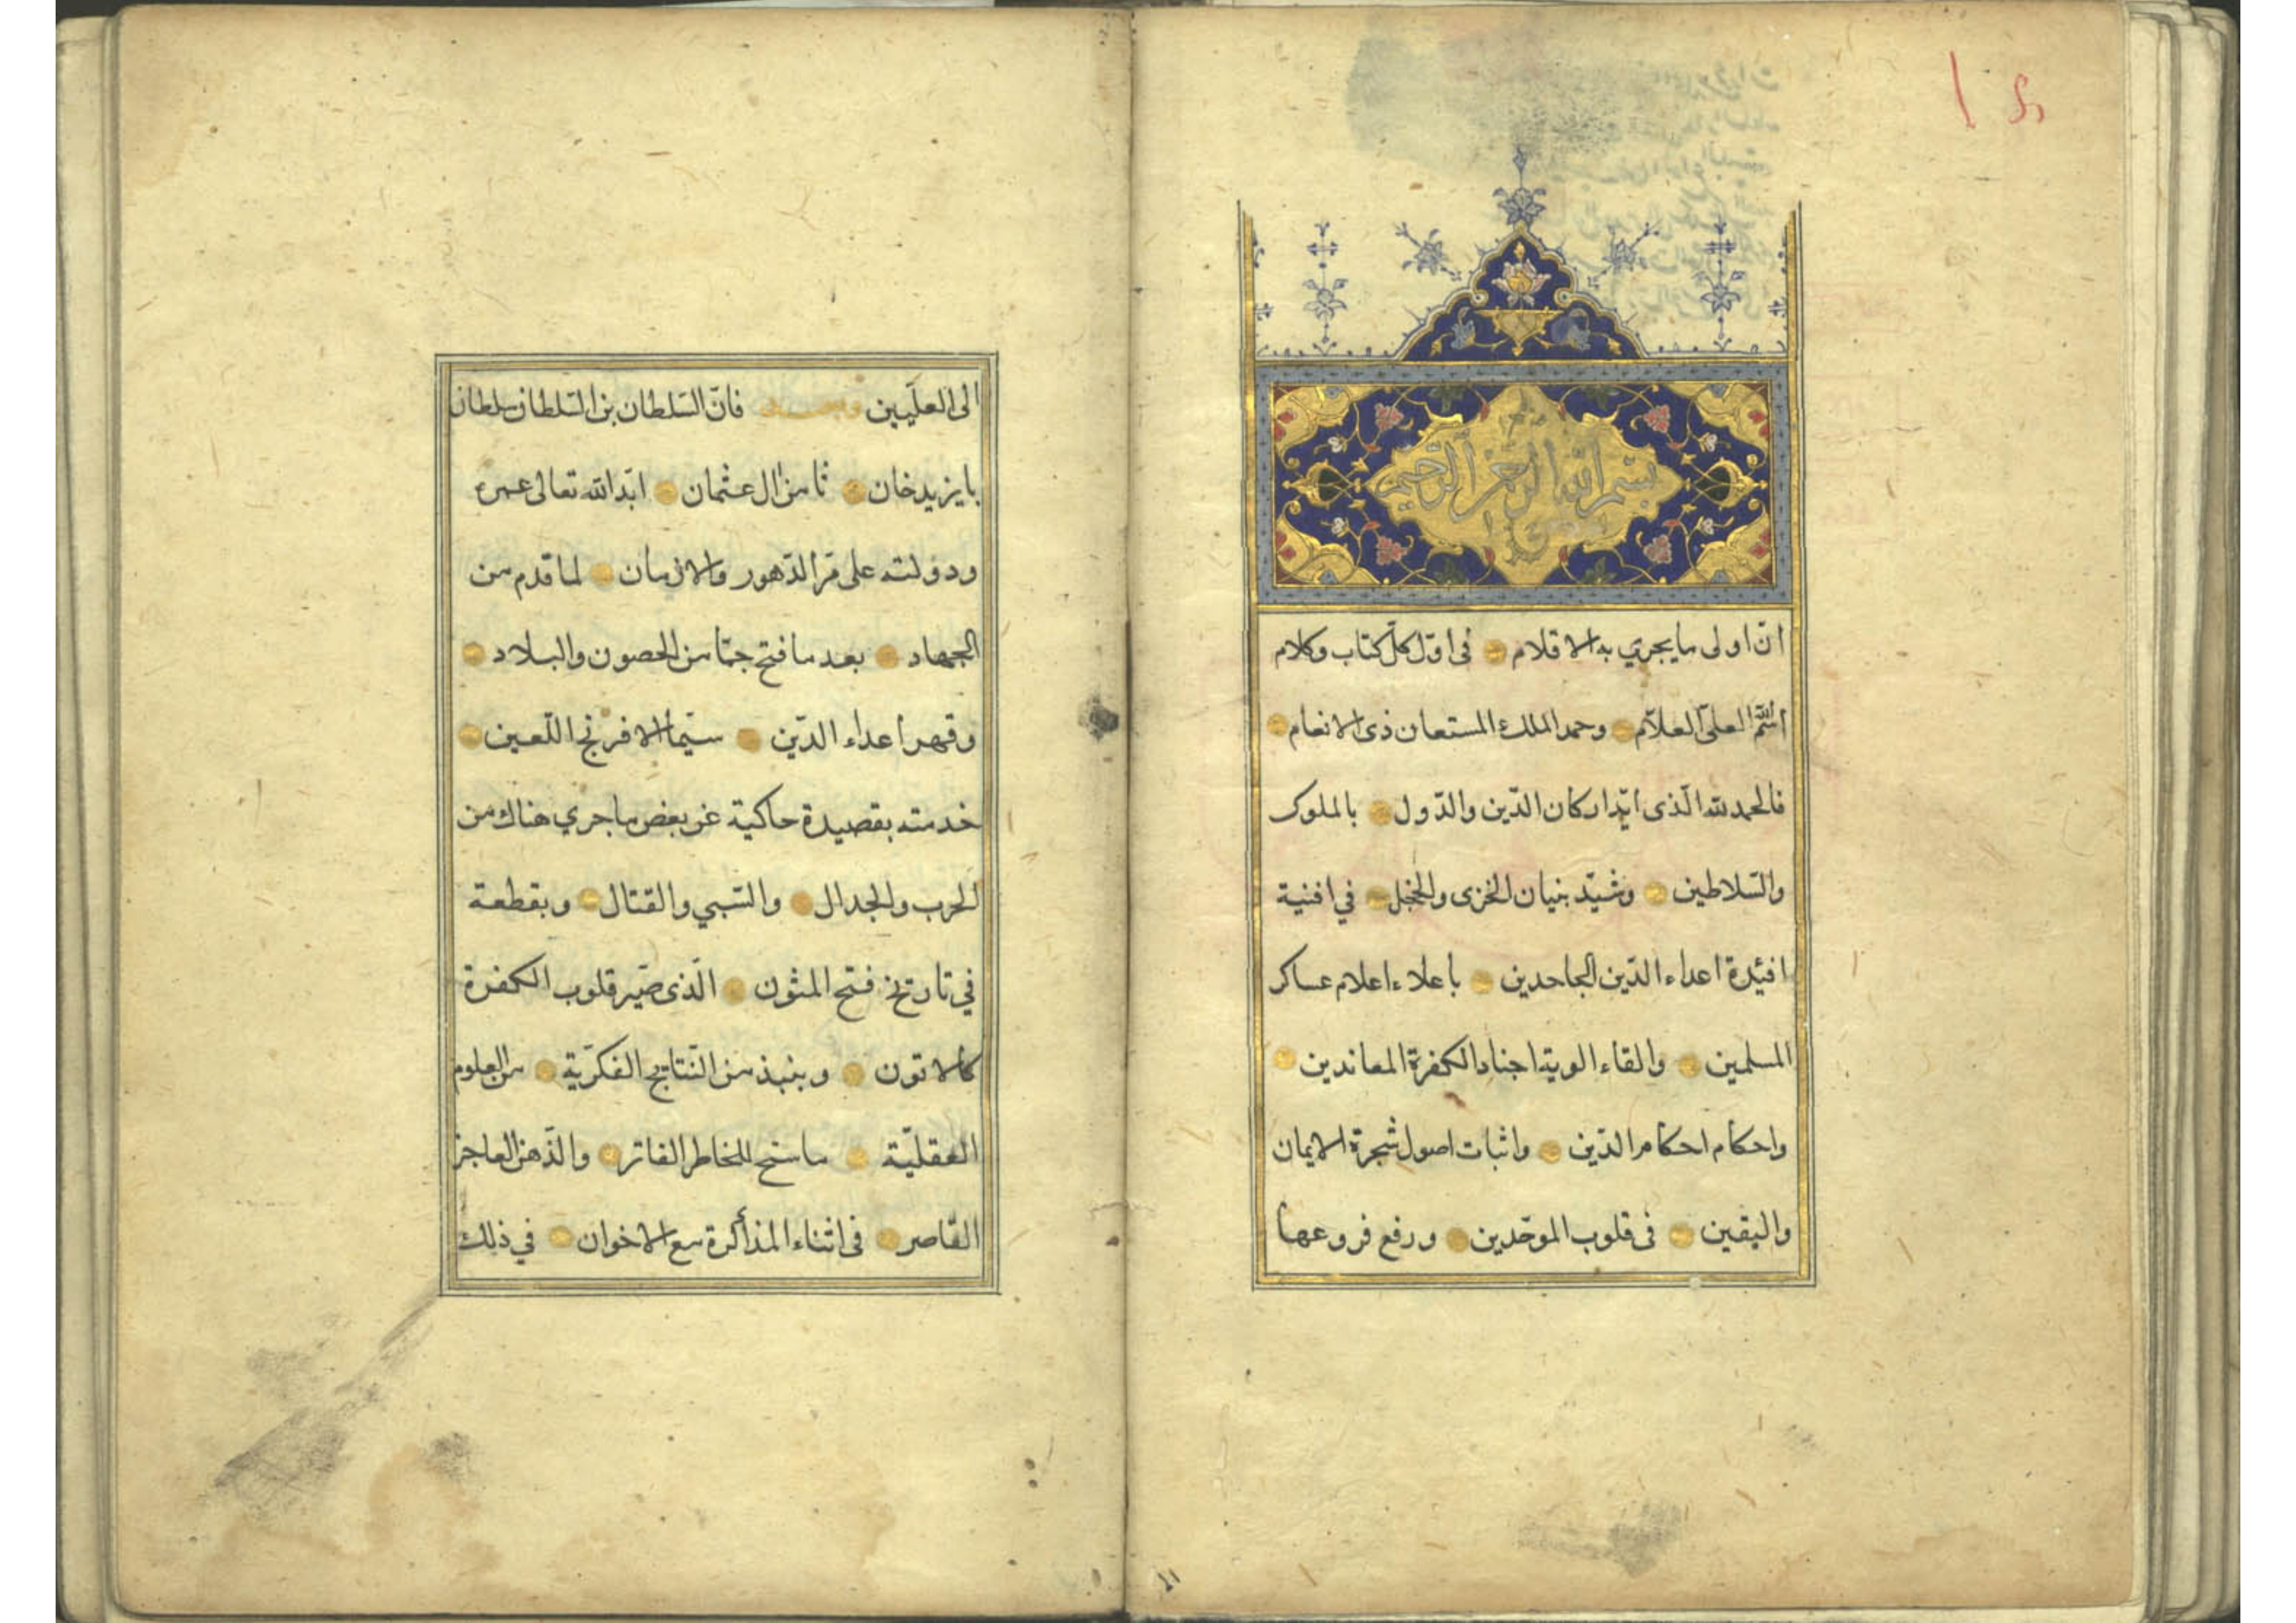 بسم الله الرحمن الرحيم
انّ اولى ما يجري به الاقلام في اوّل كلّ كتاب وكلام
اسم الله العليّ العلاّم وحمد الملك المستعان ذى الانعام
فالحمد لله الّذى ايّد اركان الدّين والدّول بالملوك
والسّلاطين وشيّد بنيان الخزى والخجل في افنية
افئدة اعداء الدّين الجاحدين باعلاء اعلام عساكر
المسلمين والقاء الوية اجناد الكفرة المعاندين
واحكام احكام الدّين واثبات اصول شجرة الايمان
واليقين فى قلوب الموحّدين ورفع فروعها
الى العلّيين وبعد فانّ السّلطان بن السّلطان سلطان
بايزيد خان ثامن ال عثمان ابّد الله تعالى عمره
ودولته على مرّ الدّهور والازمان لما قدم من
الجهاد بعد ما فتح جمّا من الحصون والبلاد
وقهر اعداء الدّين سيّما الافرنج اللّعين
خدمته بقصيدة حاكية عن بعض ما جري هناك من
الحرب والجدال والسّبي والقتال وبقطعة
في تاريخ فتح المثون الّذى صيّر قلوب الكفرة
كالاتون وبنبذ من النّتايج الفكريّة من العلوم
العقليّة ما سنح للخاطر الفاتر والذّهن العاجز
القاصر فى اثناء المذاكرة مع الاخوان في ذلك